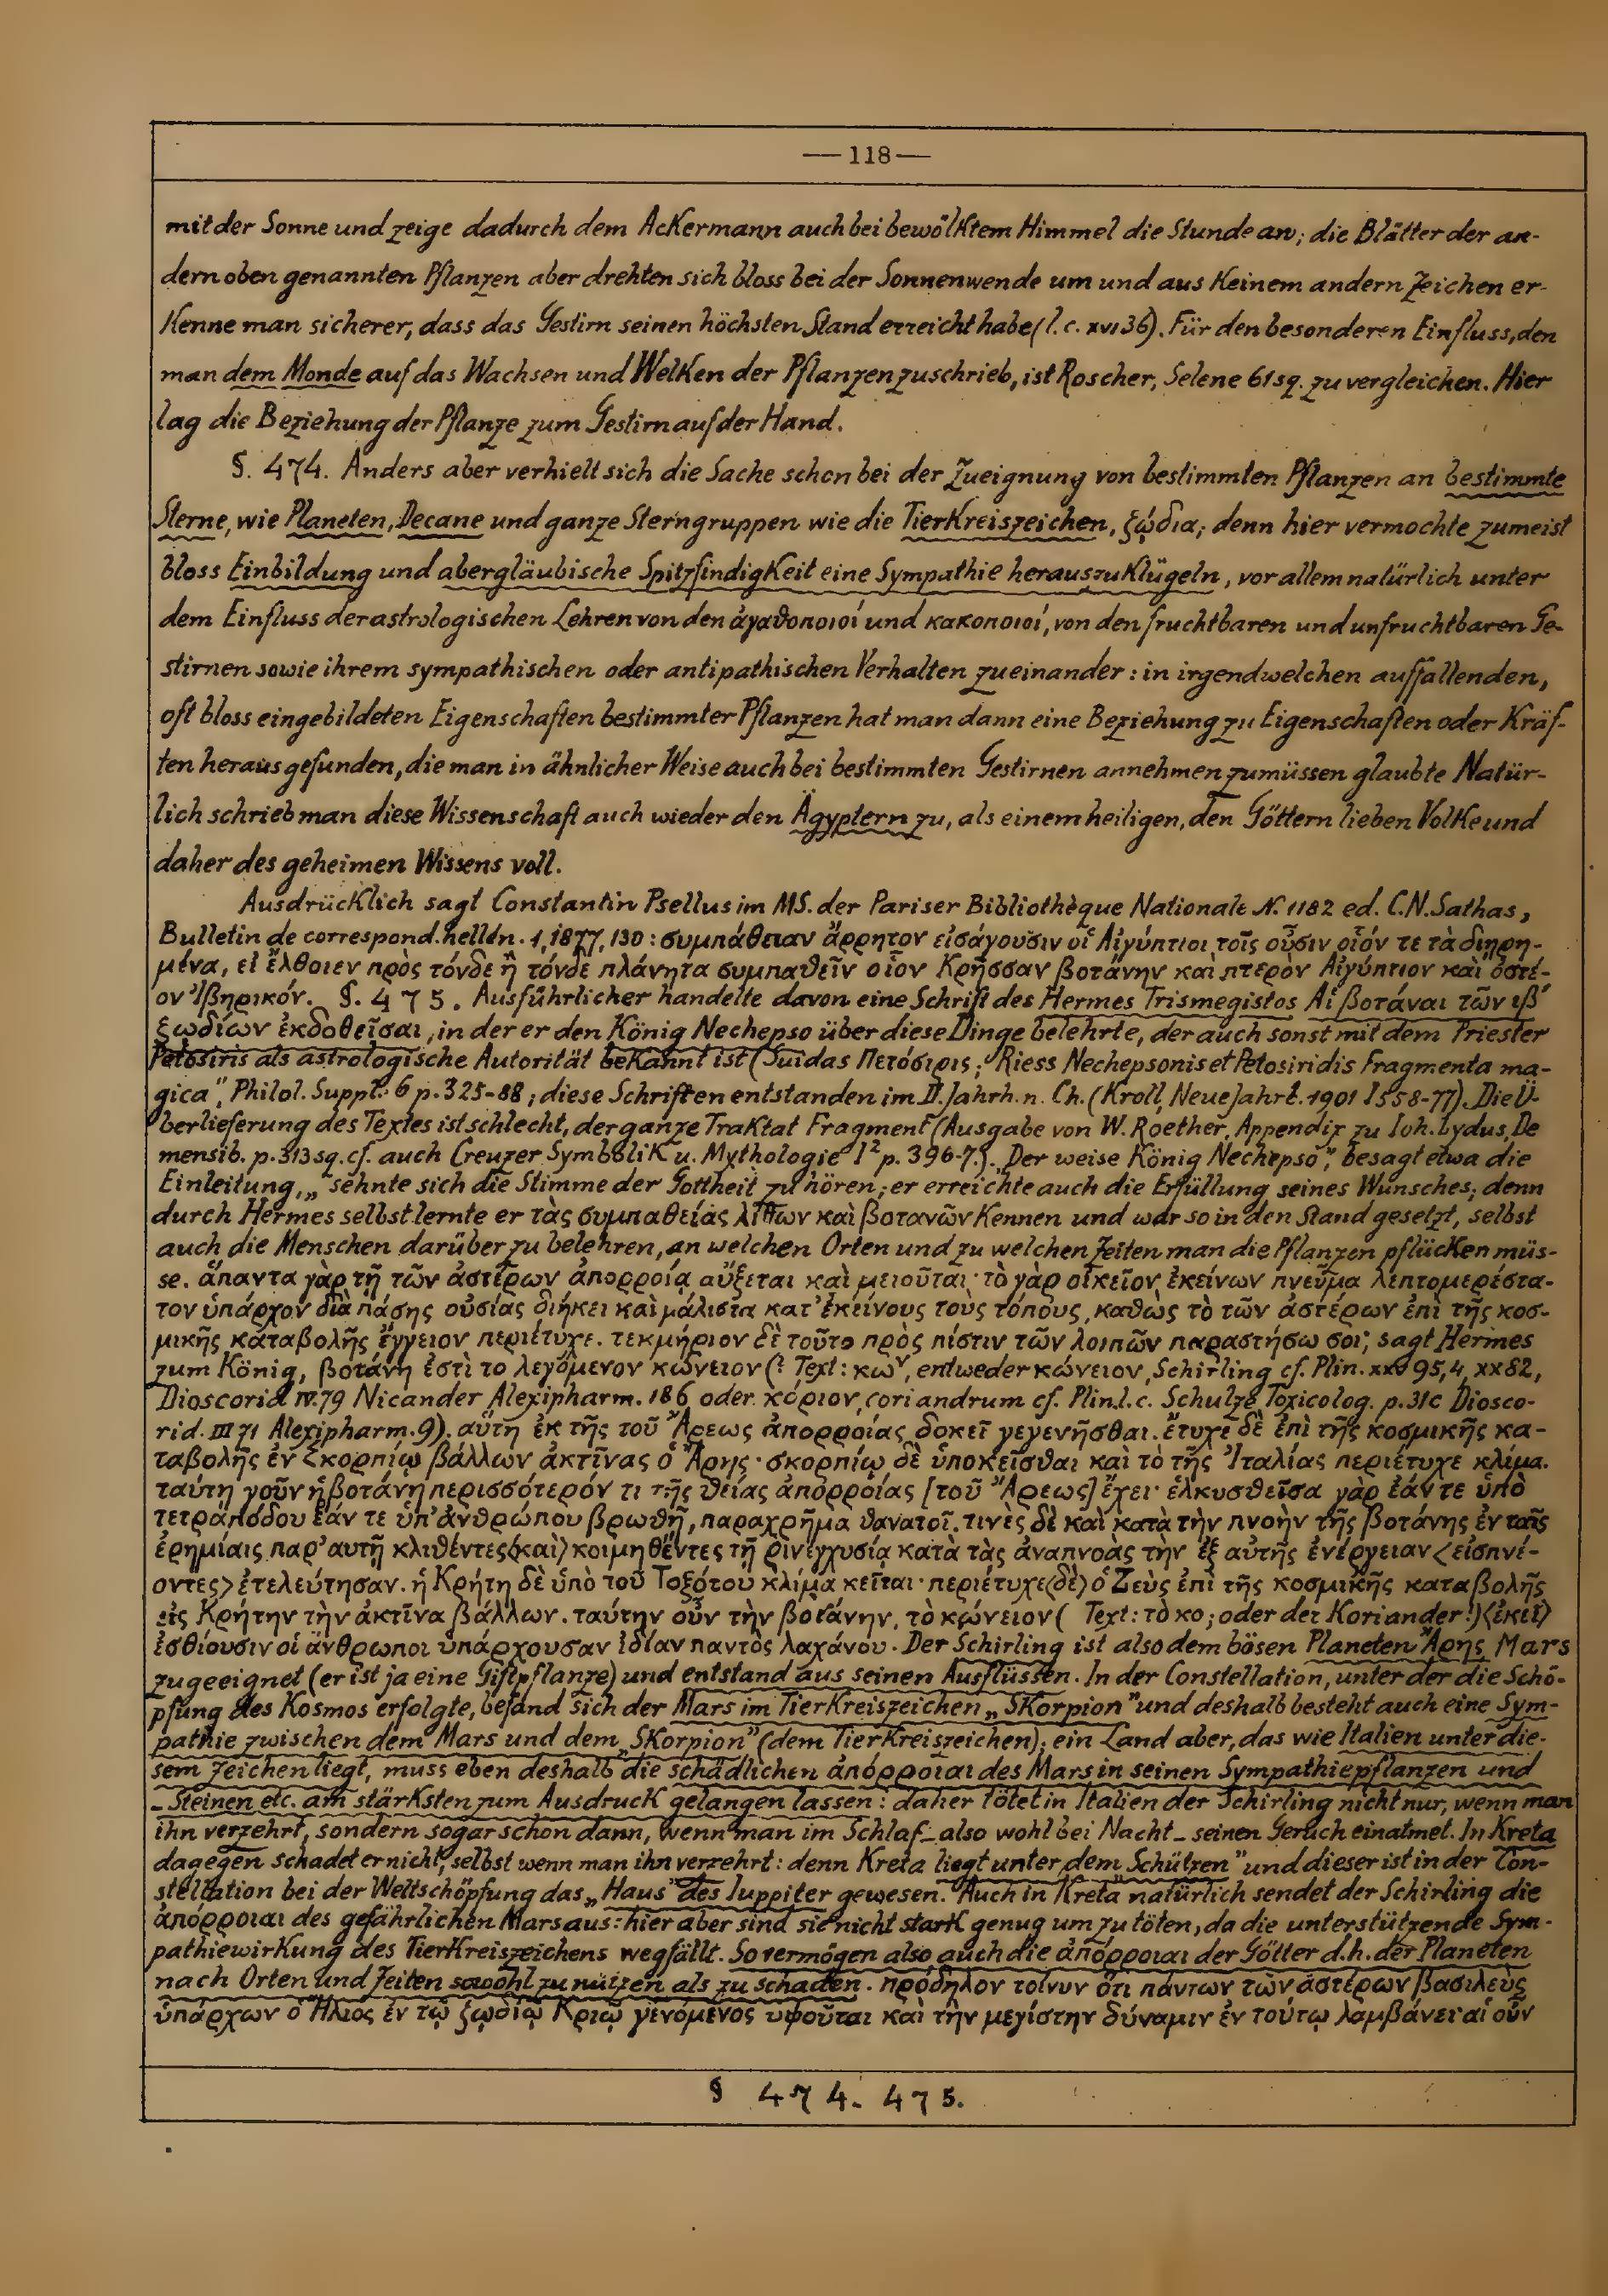 — 118 —
mit der Sonne und zeige dadurch dem Ackermann auch bei bewölktem Himmel die Stunde an; die Blätter der an-
dern oben genannten Pflanzen aber drehten sich bloss bei der Sonnenwende um und aus keinem andern Zeichen er-
kenne man sicherer, dass das Gestirn seinen höchsten Stand erreicht habe (l. c. XVI 36). Für den besonderen Einfluss, den
man dem Monde auf das Wachsen und Welken der Pflanzen zuschrieb, ist Roscher, Selene 61 sq. zu vergleichen. Hier
lag die Beziehung der Pflanze zum Gestirn auf der Hand.
§. 474. Anders aber verhielt sich die Sache schon bei der Zueignung von bestimmten Pflanzen an bestimmte
Sterne, wie Planeten, Decane und ganze Sterngruppen wie die Tierkreiszeichen, ζῴδια; denn hier vermochte zumeist
bloss Einbildung und abergläubische Spitzfindigkeit eine Sympathie herauszuklügeln, vor allem natürlich unter
dem Einfluss der astrologischen Lehren von den ἀγαθοποιοί und κακοποιοί, von den fruchtbaren und unfruchtbaren Ge-
stirnen sowie ihrem sympathischen oder antipathischen Verhalten zueinander: in irgendwelchen auffallenden,
oft bloss eingebildeten Eigenschaften bestimmter Pflanzen hat man dann eine Beziehung zu Eigenschaften oder Kräf-
ten herausgefunden, die man in ähnlicher Weise auch bei bestimmten Gestirnen annehmen zu müssen glaubte Natür-
lich schrieb man diese Wissenschaft auch wieder den Ägyptern zu, als einem heiligen, den Göttern lieben Volke und
daher des geheimen Wissens voll.
Ausdrücklich sagt Constantin Psellus im MS. der Pariser Bibliothèque Nationale N. 1182 ed. C.N. Sathas,
Bulletin de correspond. hellén. 1, 1877, 130: συμπάθειαν ἄρρητον εἰσάγουσιν οἱ Αἰγύπτιοι τοῖς οὖσιν οἷόν τε τὰ διῃρη-
μένα, εἰ ἔλθοιεν πρὸς τόνδε ἢ τόνδε πλάνητα συμπαθεῖν οἷον Κρῆσσαν βοτάνην καὶ πτερὸν Αἰγύπτιον καὶ ὀστέ-
ον Ἰβηρικόν. §. 475. Ausführlicher handelte davon eine Schrift des Hermes Trismegistos Αἱ βοτάναι τῶν ιβ´
ζωδίων ἐκδοθεῖσαι, in der er den König Nechepso über diese Dinge belehrte, der auch sonst mit dem Priester
Petosiris als astrologische Autorität bekannt ist (Suidas Πετόσιρις; Riess Nechepsonis et Petosiridis Fragmenta ma-
gica", Philol. Suppl. 6 p. 325-88; diese Schriften entstanden im II. Jahrh. n. Ch. (Kroll, Neue Jahrb. 1901 I 558-77). Die Ü-
berlieferung des Textes ist schlecht, der ganze Traktat Fragment (Ausgabe von W. Roether, Appendix zu Ioh. Lydus, De
mensib. p. 313 sq. cf. auch Creuzer Symbolik u. Mythologie I² p. 396-7.). „Der weise König Nechepso", besagt etwa die
Einleitung, „sehnte sich die Stimme der Gottheit zu hören; er erreichte auch die Erfüllung seines Wunsches; denn
durch Hermes selbst lernte er τὰς συμπαθείας λίθων καὶ βοτανῶν kennen und war so in den Stand gesetzt, selbst
auch die Menschen darüber zu belehren, an welchen Orten und zu welchen Zeiten man die Pflanzen pflücken müs-
se. ἅπαντα γὰρ τῇ τῶν ἀστέρων ἀπορροίᾳ αὔξεται καὶ μειοῦται· τὸ γὰρ οἰκεῖον ἐκείνων πνεῦμα λεπτομερέστα-
τον ὑπάρχον διὰ πάσης οὐσίας διήκει καὶ μάλιστα κατ' ἐκείνους τοὺς τόπους, καθὼς τὸ τῶν ἀστέρων ἐπὶ τῆς κοσ-
μικῆς καταβολῆς ἔγγειον περιέτυχε. τεκμήριον δὲ τοῦτο πρὸς πίστιν τῶν λοιπῶν παραστήσω σοι; sagt Hermes
zum König, βοτάνη ἐστὶ το λεγόμενον κώνειον (? Text: κωʸ, entweder κώνειον, Schirling cf. Plin. XXV 95,4, XX 82,
Dioscorid IV. 79 Nicander Alexipharm. 186 oder κόριον, coriandrum cf. Plin. l. c. Schulze Toxicolog. p. 31c Diosco-
rid. III 71 Alexipharm. 9). αὕτη ἐκ τῆς τοῦ Ἄρεως ἀπορροίας δοκεῖ γεγενῆσθαι. ἔτυχε δὲ ἐπὶ τῆς κοσμικῆς κα-
ταβολῆς ἐν Σκορπίῳ βάλλων ἀκτῖνας ὁ Ἄρης· σκορπίῳ δὲ ὑποκεῖσθαι καὶ τὸ τῆς Ἰταλίας περιέτυχε κλίμα.
ταύτη γοῦν ἡ βοτάνη περισσότερόν τι τῆς θείας ἀπορροίας [τοῦ Ἄρεως] ἔχει· ἑλκυσθεῖσα γὰρ ἐάν τε ὑπὸ
τετράποδου ἐάν τε ὑπ' ἀνθρώπου βρωθῇ, παραχρῆμα θανατοῖ. τινὲς δὲ καὶ κατὰ τὴν πνοὴν τῆς βοτάνης ἐν ταῖς
ἐρημίαις παρ' αυτῇ κλιθέντες ⟨καὶ⟩ κοιμηθέντες τῇ ῥινεγχυσίᾳ κατὰ τὰς ἀναπνοὰς τὴν ἐξ αὐτῆς ἐνέργειαν ⟨εἰσπνέ-
οντες⟩ ἐτελεύτησαν. ἡ Κρήτη δὲ ὑπὸ τοῦ Τοξότου κλίμα κεῖται· περιέτυχε ⟨δὲ⟩ ὁ Ζεὺς ἐπὶ τῆς κοσμικῆς καταβολῆς
εἰς Κρήτην τὴν ἀκτῖνα βάλλων. ταύτην οὖν τὴν βοτάνην, τὸ κώνειον ( Text: τὸ κο; oder der Koriander!) ⟨ἐκεῖ⟩
ἐσθίουσιν οἱ ἄνθρωποι ὑπάρχουσαν ἰδίαν παντὸς λαχάνου. Der Schirling ist also dem bösen Planeten Ἄρης, Mars
zugeeignet (er ist ja eine Giftpflanze) und entstand aus seinen Ausflüssen. In der Constellation, unter der die Schö-
pfung des Kosmos erfolgte, befand sich der Mars im Tierkreiszeichen „Skorpion" und deshalb besteht auch eine Sym-
pathie zwischen dem Mars und dem „Skorpion" (dem Tierkreiszeichen); ein Land aber, das wie Italien unter die-
sem Zeichen liegt, muss eben deshalb die schädlichen ἀπόρροιαι des Mars in seinen Sympathiepflanzen und
-Steinen etc. am stärksten zum Ausdruck gelangen lassen: daher tötet in Italien der Schirling nicht nur, wenn man
ihn verzehrt, sondern sogar schon dann, wenn man im Schlaf - also wohl bei Nacht - seinen Geruch einatmet. In Kreta
dagegen schadet er nicht, selbst wenn man ihn verzehrt: denn Kreta liegt unter dem „Schützen" und dieser ist in der Con-
stellation bei der Weltschöpfung das „Haus" des Iuppiter gewesen. Auch in Kreta natürlich sendet der Schirling die
ἀπόρροιαι des gefährlichen Mars aus: hier aber sind sie nicht stark genug um zu töten, da die unterstützende Sym-
pathiewirkung des Tierkreiszeichens wegfällt. So vermögen also auch die ἀπόρροιαι der Götter d.h. der Planeten
nach Orten und Zeiten sowohl zu nützen als zu schaden. πρόδηλον τοίνυν ὅτι πάντων τῶν ἀστέρων βασιλεὺς
ὑπάρχων ὁ Ἥλιος ἐν τῷ ζῳδίῳ Κριῷ γενόμενος ὑψοῦται καὶ τὴν μεγίστην δύναμιν ἐν τούτῳ λαμβάνει· αἱ οὖν
§ 474. 475.